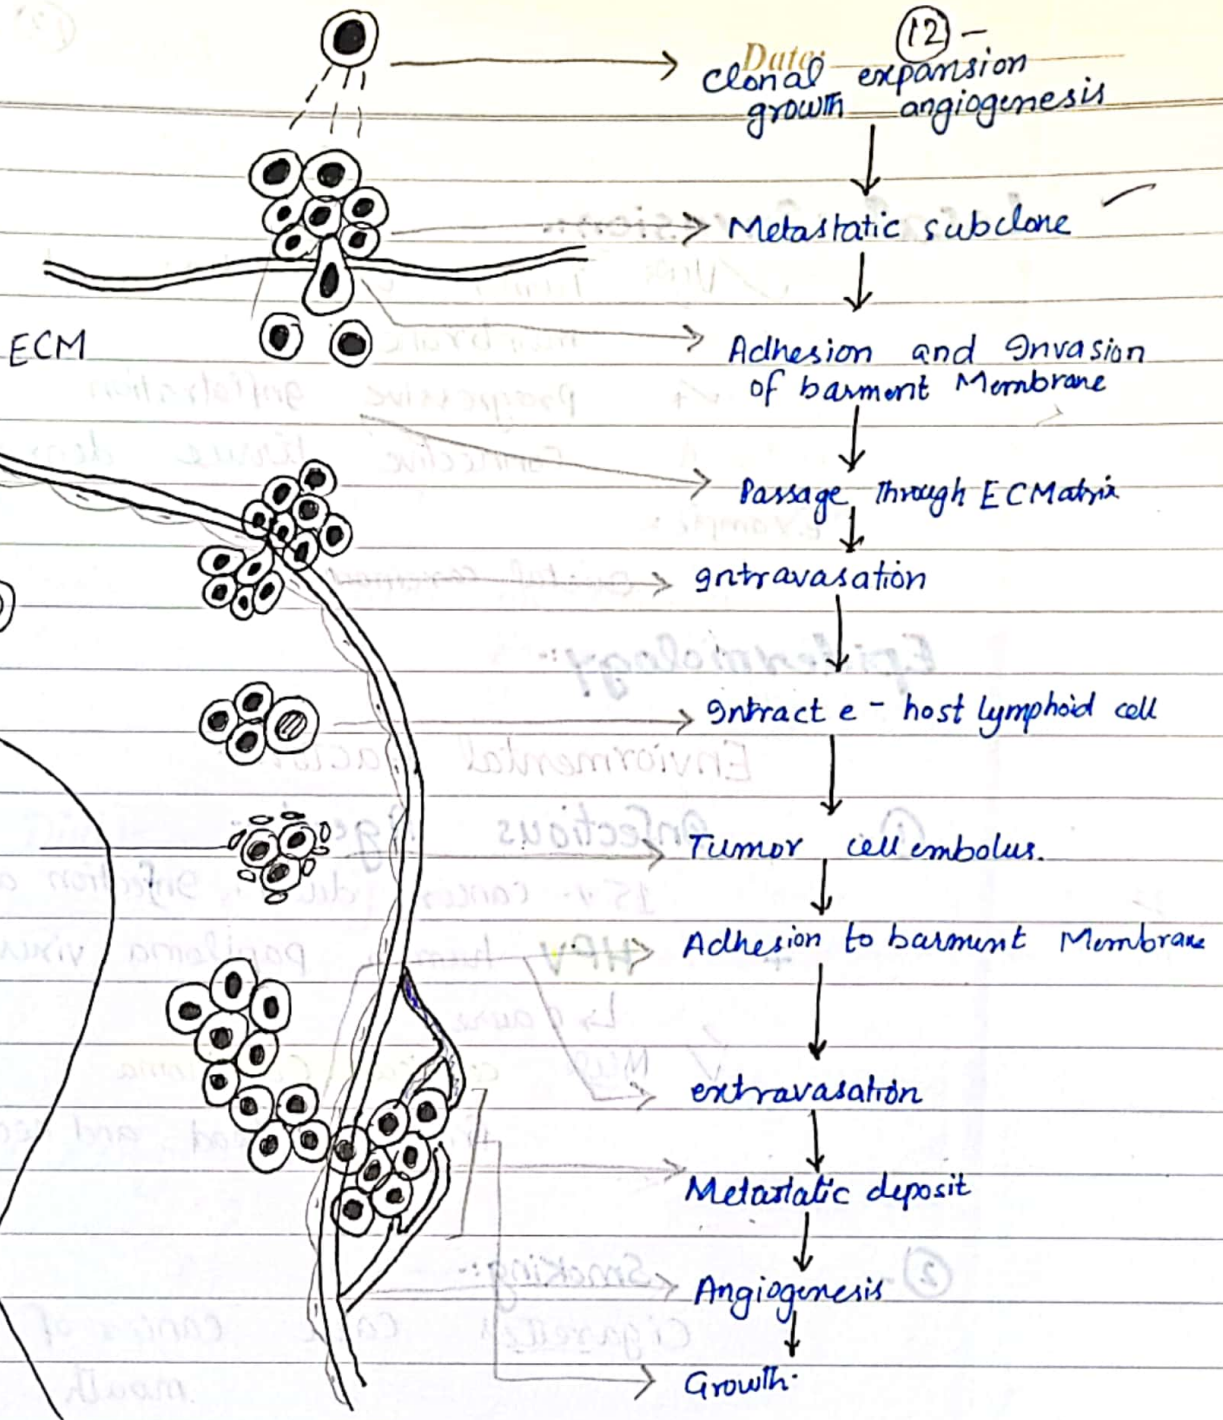 Date:
12 -
Clonal expansion
growth angiogenesis
Metastatic subclone
Adhesion and Invasion
of barment Membrane
ECM
Passage through ECMatrix
Intravasation
Intract e - host lymphoid cell
Tumor cell embolus.
Adhesion to barment Membrane
extravasation
Metastatic deposit
Angiogenesis
Growth.